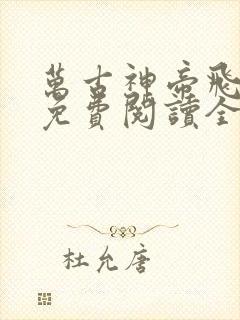 萬古神帝飛
免費閱讀全
杜允唐